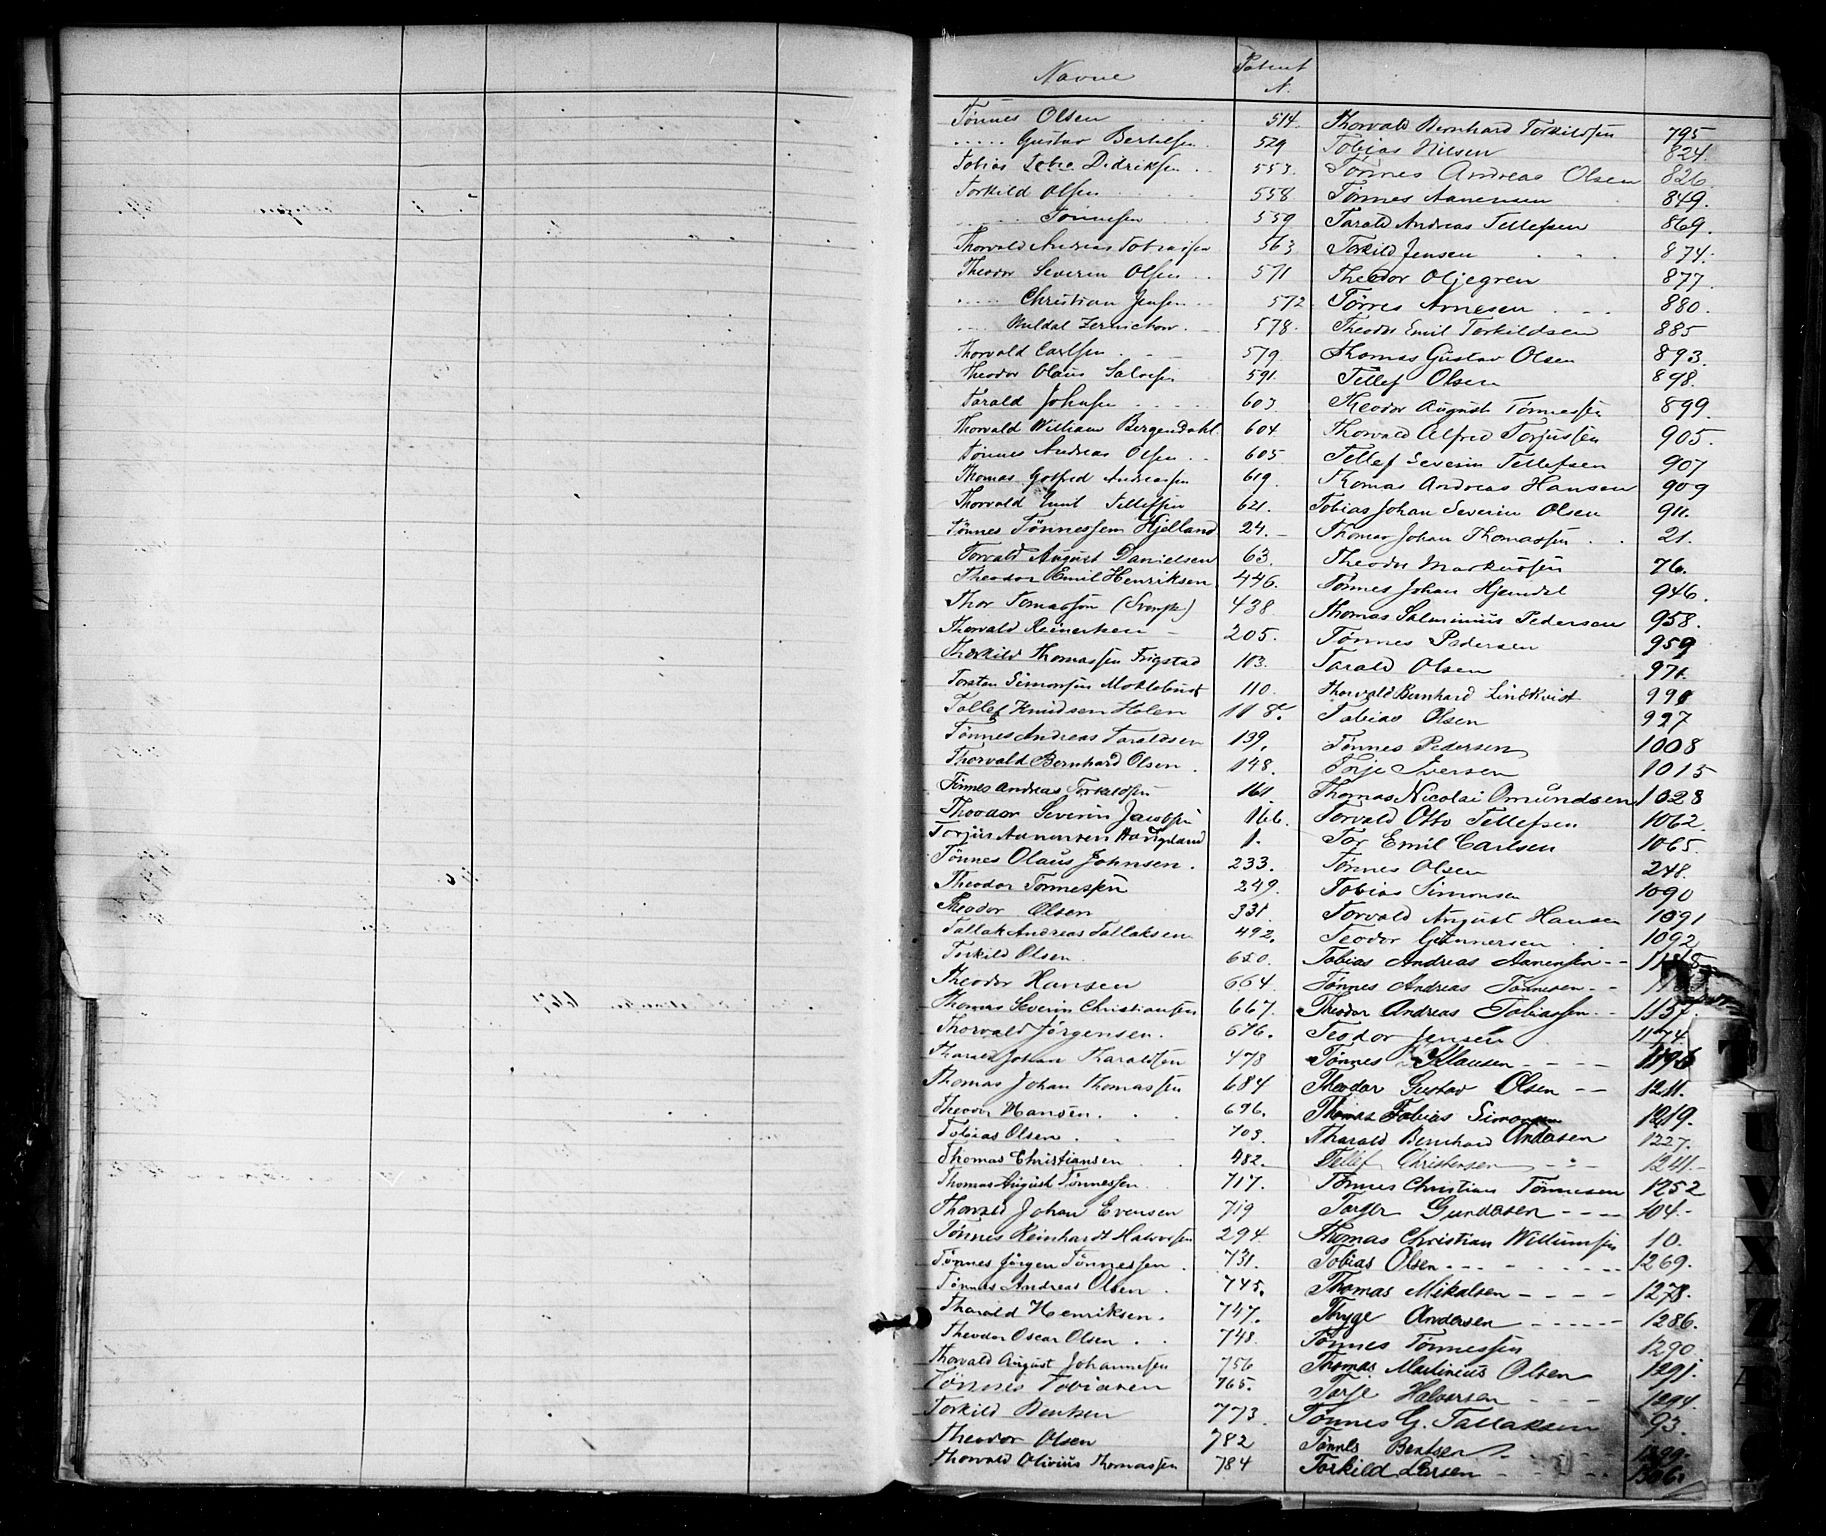 Navne Patent N.
Tønnes Olsen 514.
..... Gustav Bertelsen. 529
Tobias Didriksen 553.
Torkild Olsen 558.
Tønnesen 559
Thorvald Andreas Tobiassen 563
Theodor Severin Olsen 571
..... Christian Jensen 572
578.
Thorvald Carlsen 579.
Theodor Olaus Salvesen 591.
Tarald Johnsen 603
Thorvald William Bergendahl. 604.
Tønnes Andreas Olsen 605
Thomas Gotfred Andreassen 619.
Thorvald Emil Tellefsen 621.
Tønnes Tønnessem Hjelland 24.
Torvald August Danielsen 63.
Theodor Emil Henriksen 446.
Thor Tomassen (Svensk) 438
Thorvald Reinertsen 205.
Thorkild Thomassen Frigstad 103.
Torsten Simonsen 110.
Tallef Knudsen Holen 118.
Tønnes Andreas Taraldsen 139.
Thorvald Bernhard Olsen 148.
Tönnes Andreas Torkildsen 161
Theodor Severin Jacobsen 166.
Torjus Aanensen Haugland 1.
Tønnes Olaus Johnsen. 233.
Theodor Tönnesen 249.
Theodor Olsen 331
Tallak Andreas Tallaksen 492.
Torkild Olsen. 650.
Theodor Hansen 664.
Thomas Severin Christiansen 667.
Thorvald Jørgensen. 676.
Tharald Johan Tharaldsen 478
Thomas Johan Thomassen 684
Theodor Hansen. 696.
Tobias Olsen 703.
Thomas Christiansen 482.
Thomas August Tønnessen 717.
Thorvald Johan Evensen 719
Tønnes Reinhardt Halvorsen 294.
Tønnes Jörgen Tönnessen. 731.
Tønnes Andreas Olsen 745.
Tharald Henriksen. 747.
Theodor Oscar Olsen 748.
Thorvald August Johannesen 756
Tønnes Tobiasen 765.
Torkild Bentsen 773.
Theodor Olsen 782
Thorvald Olivius Thomassen 784
Thorvald Bernhard Torkildsen 795
Tobias Nilsen 824.
Tønnes Andreas Olsen 826
Tønnes Aanensen 849.
Tarald Andreas Tellefsen 869.
Torkild Jensen 874.
Theodor Oljegren 877.
Tørres Arnesen 880.
Theodor Emil Torkildsen 885
Thomas Gustav Olsen 893.
Tellef Olsen 898.
Theodor August Tønnessen 899.
Thorvald Alfred Torjussen 905.
Tellef Severin Tellefsen 907
Thomas Andreas Hansen 909
Tobias Johan Severin Olsen 911.
Thomas Johan Thomassen 21.
Theodor Markussen 76.
Tønnes Johan Hjemdal 946.
Thomas Salminius Pedersen 958.
Tønnes Pedersen 959
Tarald Olsen 971.
Thorvald Bernhard Lindkvist 990
Tobias Olsen 997
Tønnes Pedersen 1008
Torje Iversen 1015
Thomas Nicolai Omundsen 1028
Torvald Otto Tellefsen 1062.
Tor Emil Carlsen 1065.
Tønnes Olsen 248.
Tobias Simonsen 1090
Torvald August Hansen 1091
Teodor Gunnersen 1092
Tobias Andreas Aanensen
Tønnes Andreas Tønnesen
Theodor Andreas Tobiassen 1157.
Teodor Jensen 1174.
Tønnes Klausen
Theodor Gustav Olsen 1211.
Thomas Tobias Simonsen 1219.
Tharald Bernhard Andersen 1227.
Tellef Christensen 1241.
Tønnes Christian Tønnesen 1252
Tarjer Gundersen 104.
Thomas Christian Willumsen 10.
Tobias Olsen 1269.
Thomas Mikalsen 1278.
Thyge Andersen 1286.
Tønnes Tønnessen 1290.
Thomas Martinius Olsen 1291.
Tarje Halvorsen 1294.
Tønnes G. Tallaksen 93.
Tønnes Bentsen 1299.
Torkild Larsen 1306.
T
U
V
X
Z